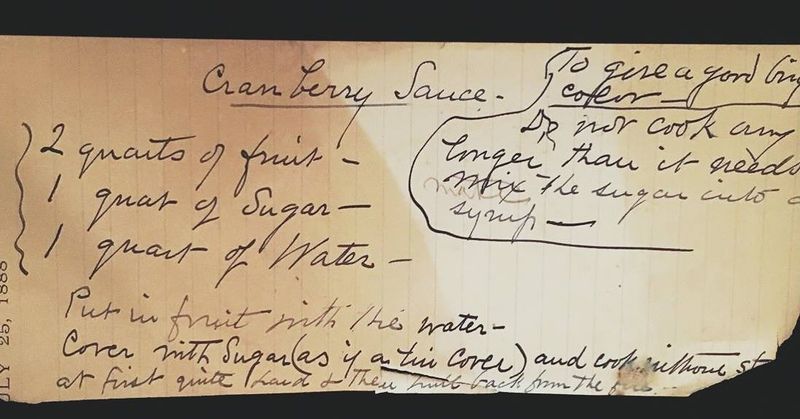 Cranberry Sauce-
To give a good brig
color-
Do not cook any
longer than it needs
mix the sugar into a
make
syrup-
2 quarts of fruit-
1 quat of Sugar-
1 quart of Water-
Put in fruit with the water-
Cover with Sugar (as if a tin cover) and cook without st
at first quite hard & then pull back from the
JULY 25, 1888